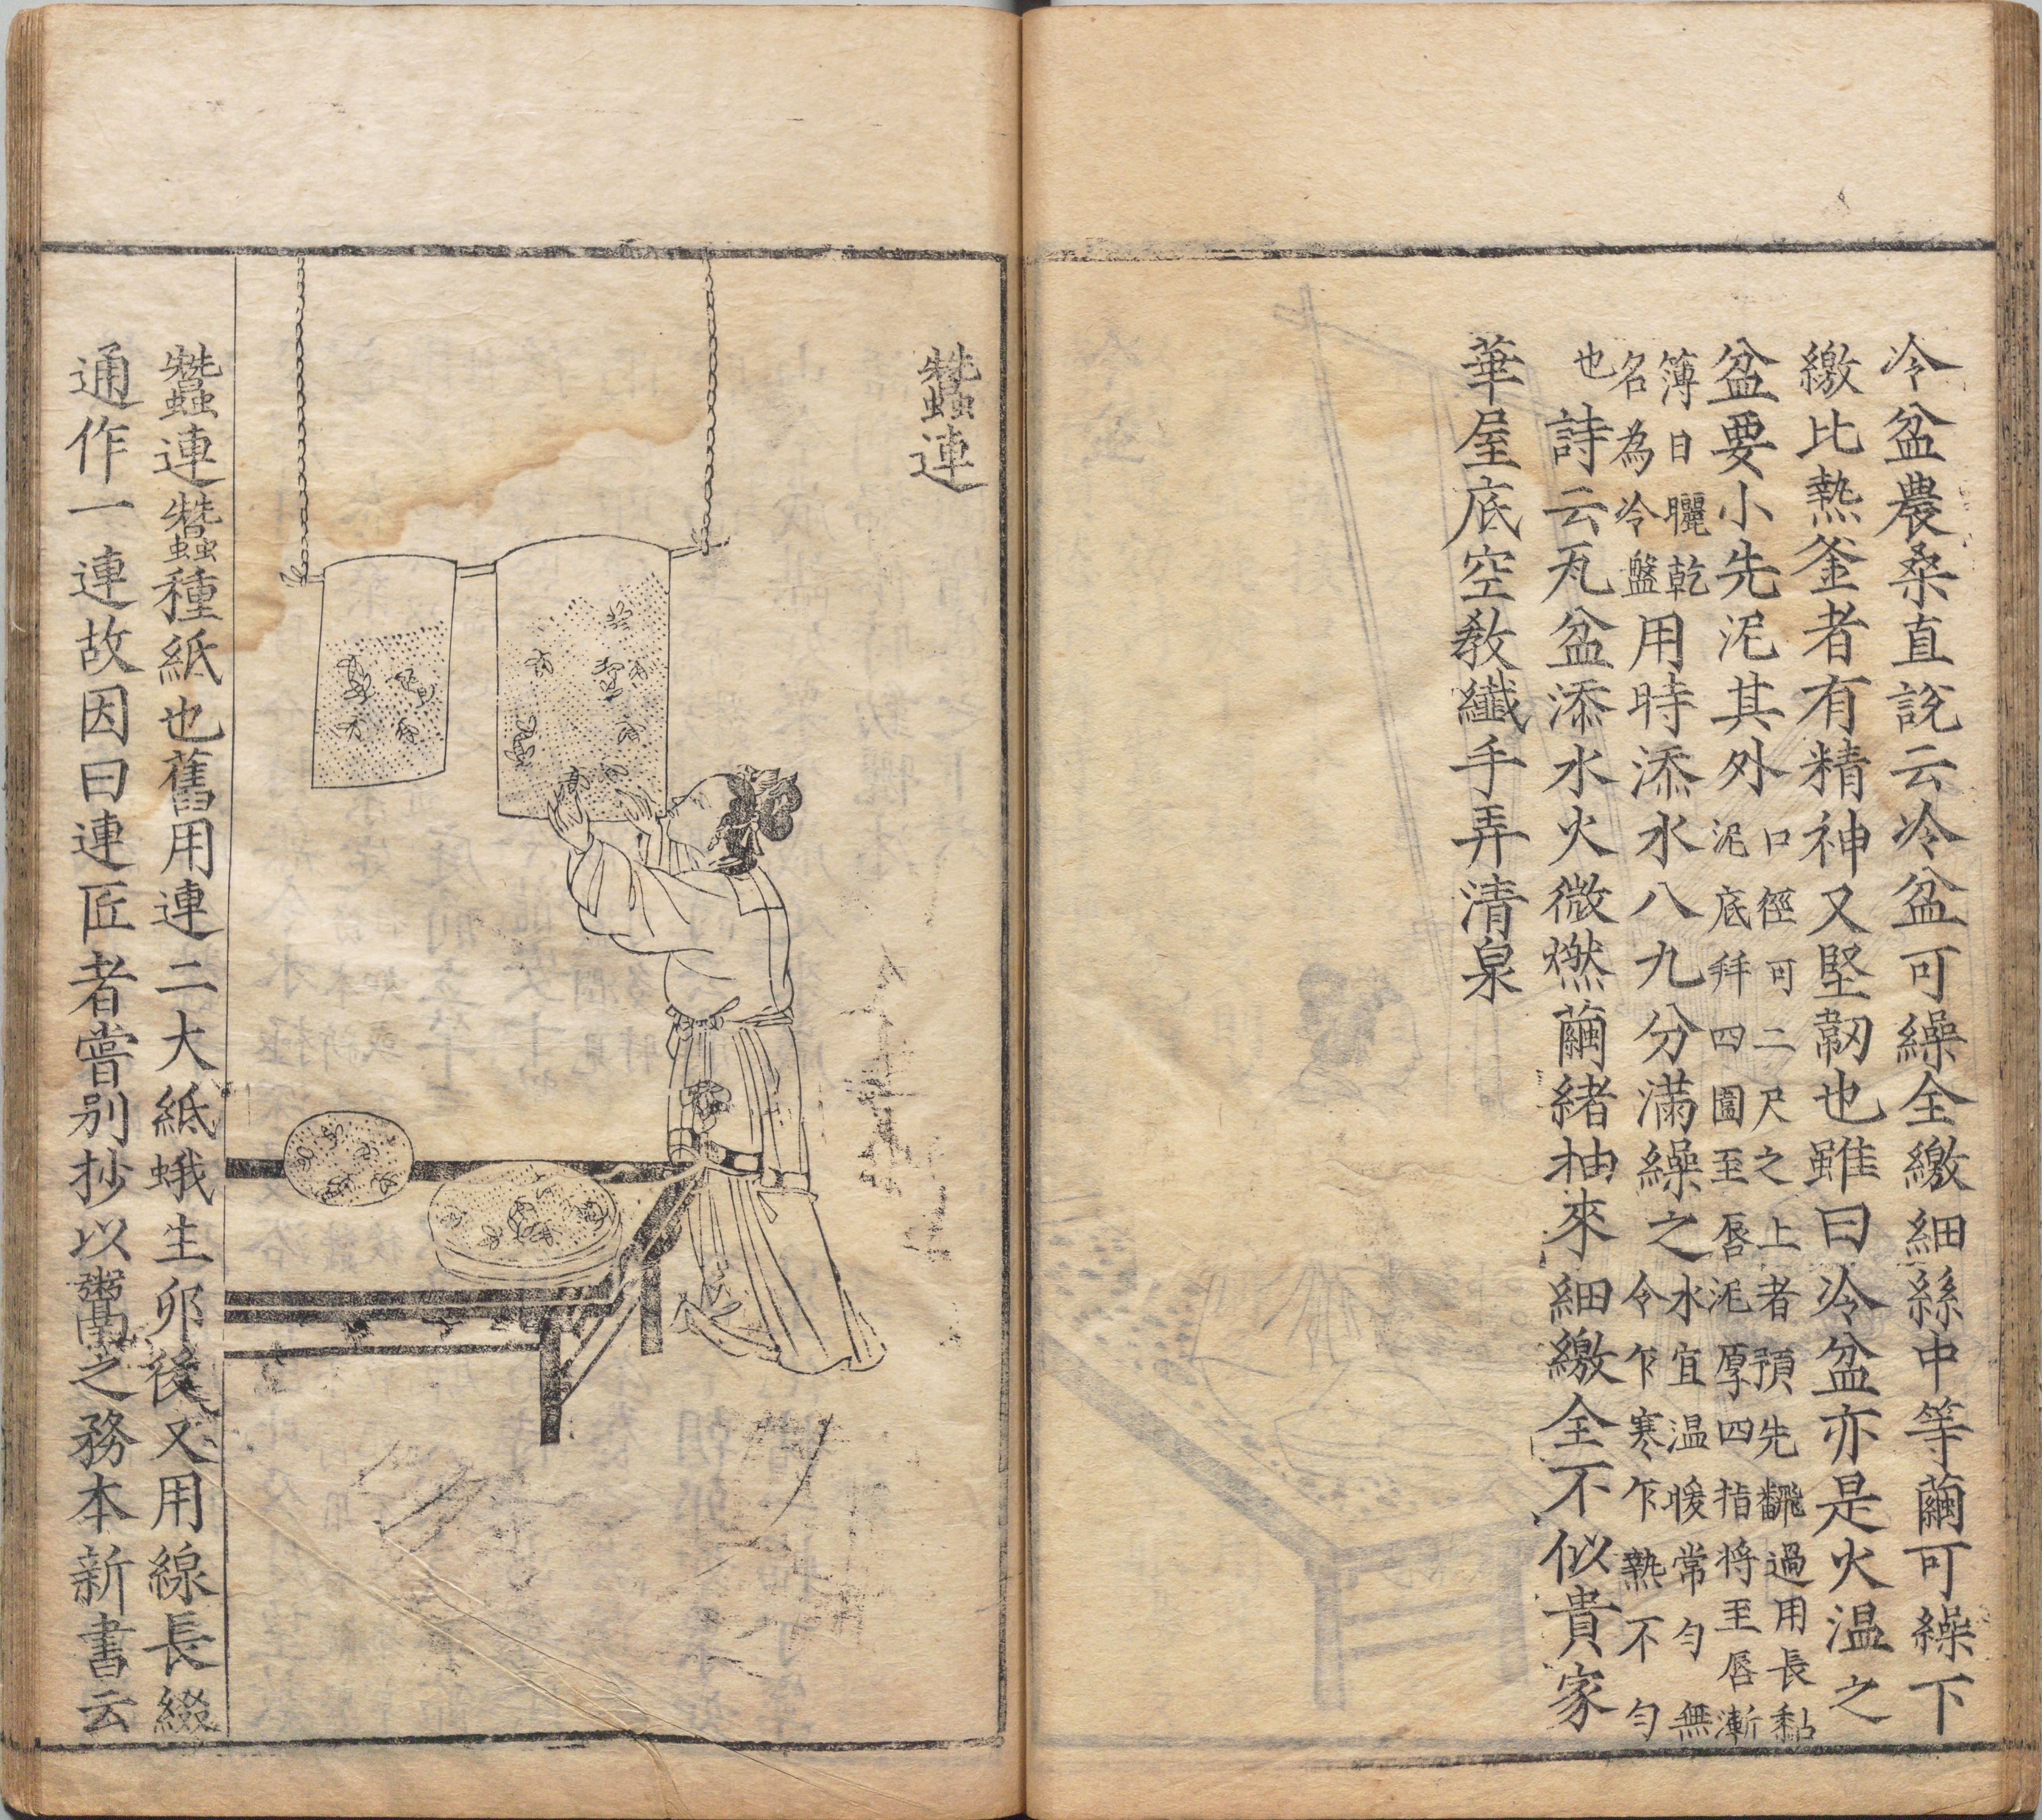 冷盆農桑直說云冷盆可繰全繳細絲中等繭可繰下
繳比熱釜者有精神又堅韌也雖曰冷盆亦是火温之
盆要小先泥其外口徑可二尺之上者預先飜過用長黏
泥底并四圍至唇泥厚四指將至唇漸
簿日曬乾
名為冷盤用時添水八九分滿繰之水宜温暖常勻無
令乍寒乍熱不勻
也詩云瓦盆添水火微燃繭緒抽來細繳全不似貴家
華屋底空敎纖手弄清泉
蠶連
蠶連蠶種紙也舊用連二大紙蛾生卵後又用線長綴
通作一連故因曰連匠者嘗别抄以鬻之務本新書云